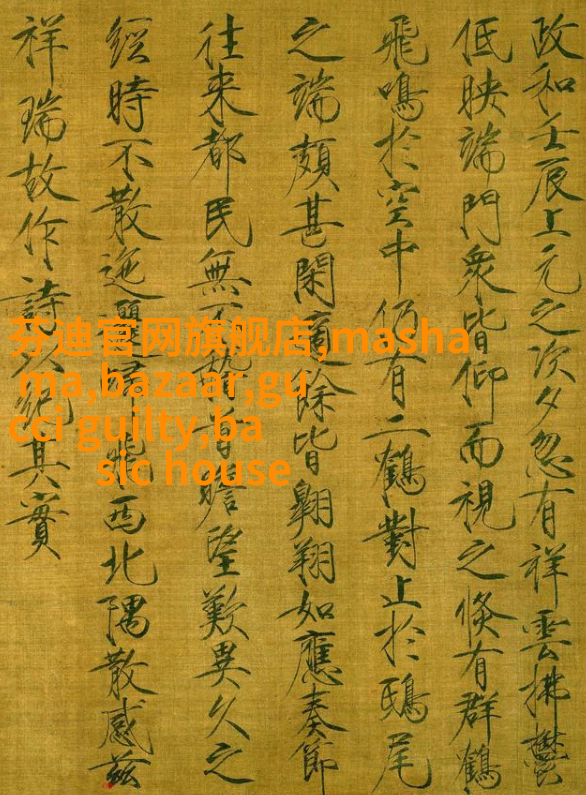 政和壬辰上元之次夕忽有祥雲拂鬱
低映端門衆皆仰而視之倏有群鶴
飛鳴於空中仍有二鶴對止於鴟尾
之端頗甚閑適餘皆翱翔如應奏節
往來都民無不首瞻望歎異久之
經時不散迤西北隅散感茲
祥瑞故作詩以紀其實
芬迪官网旗舰店,masha
ma,bazaar,gu
cci guilty,ba
sic house